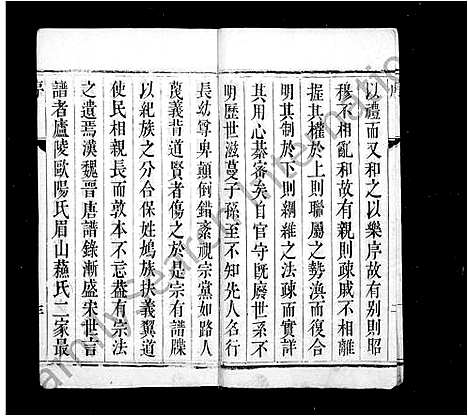 以禮而又和之以樂序故有别則昭
穆不相亂和故有親則疎戚不相離
握其權於上則聯屬之勢渙而復合
明其制於下則綱維之法疎而實詳
其用心綦審矣自官守既廢世系不
明歷世滋蔓子孫至不知先人名行
長幼尊卑顛倒錯紊視宗黨如路人
蔑義背道賢者傷之於是宗有譜牒
以紀族之分合保姓鳩族扶義翼道
使民相親長而敦本不忘葢有宗法
之遺焉漢魏晉唐譜錄漸盛宋世言
譜者廬陵歐陽氏眉山蘇氏二家最
序
FamilySearch International